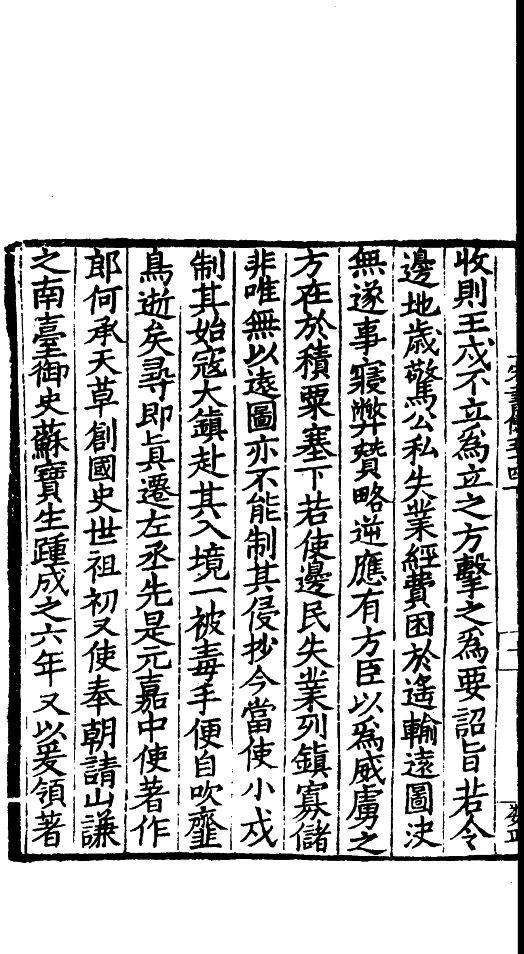 收則王戍不立爲立之方擊之爲要詔旨若令
邊地歲驚公私失業經費困於遙輸遠圖決
無遂事寢弊贊略逆應有方臣以爲威虜之
方在於積粟塞下若使邊民失業列鎮寡儲
非唯無以遠圖亦不能制其侵抄今當使小戍
制其始寇大鎮赴其入境一被毒手便自吹虀
鳥逝矣尋即眞遷左丞先是元嘉中使著作
郎何承天草創國史世祖初又使奉朝請山謙
之南臺御史蘇寶生踵成之六年又以爰領著